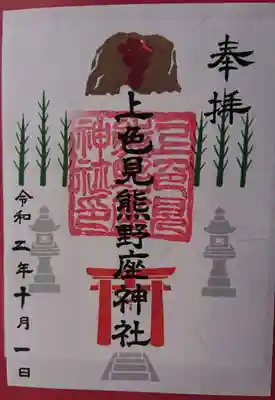 奉拝
上色見熊野座神社
令和五年十月一日
上色見
神社印